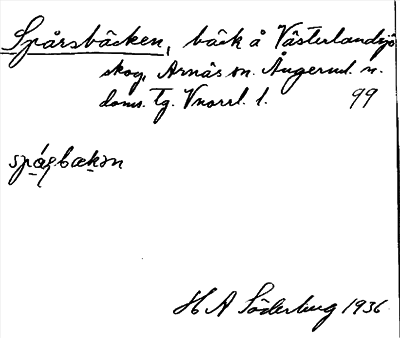 Spårsbäcken, bäck å Västerlandsjö
skog, Arnäs sn. Ångerml. n.
doms. Tg. Vnorrl. l. 99
spa̱ʂbæḵən
H A Söderberg 1936